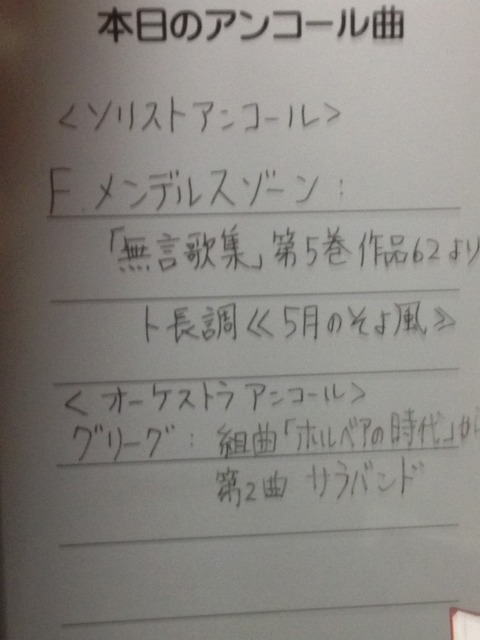 本日のアンコール曲
<ソリストアンコール>
F.メンデルスゾーン:
「無言歌集」第5巻 作品62より
ト長調≪5月のそよ風≫
<オーケストラ アンコール>
グリーグ: 組曲「ホルベアの時代」から
第2曲 サラバンド